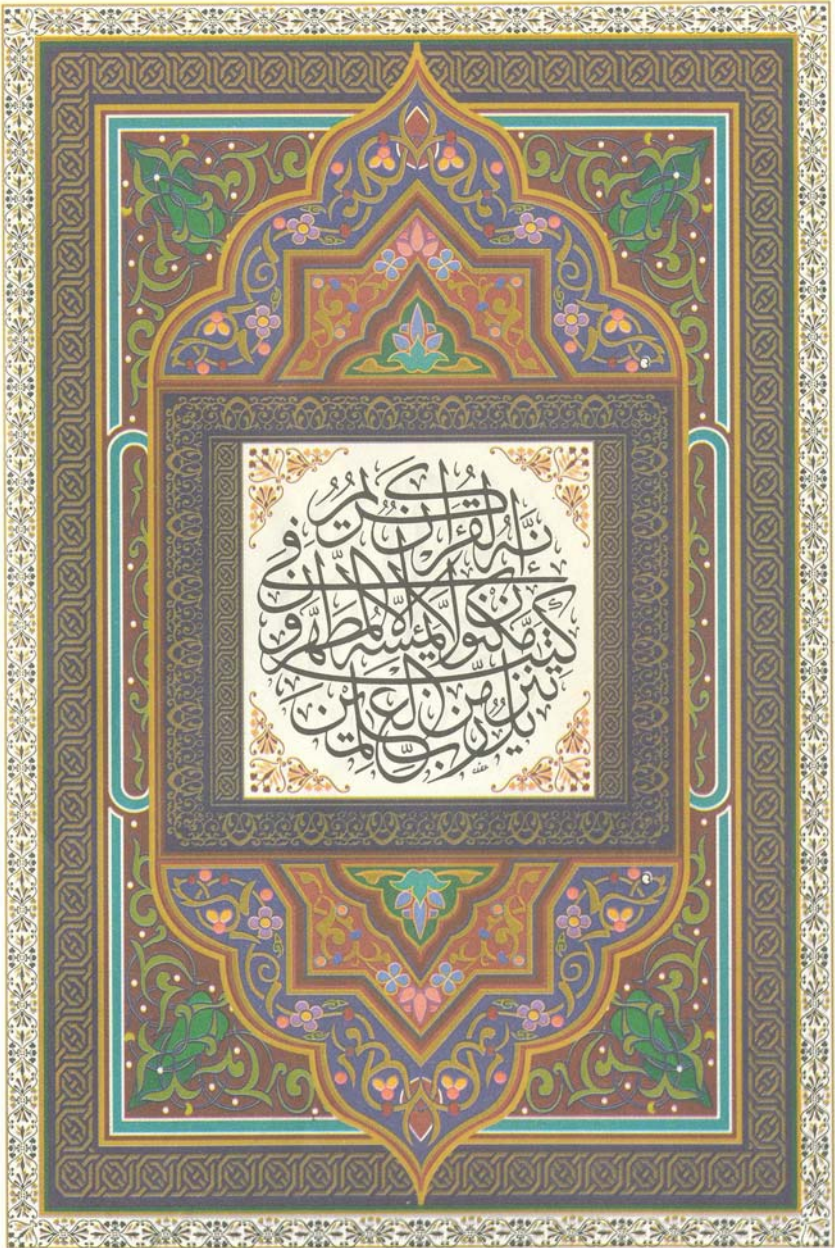 إنه لقرءان كريم
في كتب مكنون لا يمسه إلا المطهرون
تنزيل من رب العلمين